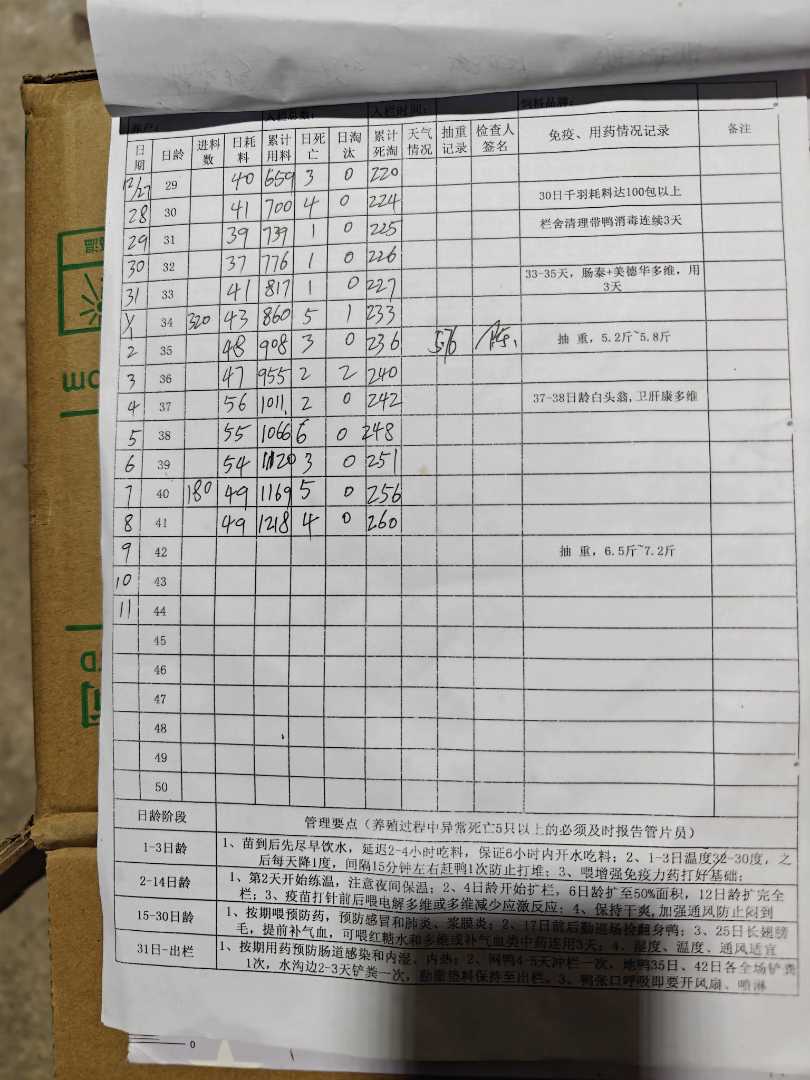 入栏总数: 入栏时间: 饲料品牌:
日期 日龄 进料数 日耗料 累计用料 日死亡 日淘汰 累计死淘 天气情况 抽重记录 检查人签名 免疫、用药情况记录 备注
12/27 29 40 659 3 0 220
28 30 41 700 4 0 224 30日千羽耗料达100包以上
29 31 39 739 1 0 225 栏舍清理带鸭消毒连续3天
30 32 37 776 1 0 226
31 33 41 817 1 0 227 33-35天，肠泰+美德华多维，用3天
1/1 34 320 43 860 5 1 233
2 35 48 908 3 0 236 5.76 抽 重，5.2斤~5.8斤
3 36 47 955 2 2 240
4 37 56 1011 2 0 242 37-38日龄白头翁,卫肝康多维
5 38 55 1066 6 0 248
6 39 54 1120 3 0 251
7 40 180 49 1169 5 0 256
8 41 49 1218 4 0 260
9 42 抽 重，6.5斤~7.2斤
10 43
11 44
45
46
47
48
49
50
日龄阶段 管理要点（养殖过程中异常死亡5只以上的必须及时报告管片员）
1-3日龄 1、苗到后先尽早饮水，延迟2-4小时吃料，保证6小时内开水吃料；2、1-3日温度32-30度，之
后每天降1度，间隔15分钟左右赶鸭1次防止打堆；3、喂增强免疫力药打好基础；
2-14日龄 1、第2天开始练温，注意夜间保温；2、4日龄开始扩栏，6日龄扩至50%面积，12日龄扩完全
栏；3、疫苗打针前后喂电解多维或多维减少应激反应；4、保持干爽,加强通风防止闷到
15-30日龄 1、按期喂预防药，预防感冒和肺炎、浆膜炎；2、17日前后勤巡场捡翻身鸭；3、25日长翅膀
毛，提前补气血，可喂红糖水和多维或补气血类中药连用3天；4、湿度、温度、通风适宜
31日-出栏 1、按期用药预防肠道感染和内湿、内热；2、网鸭4-5天冲栏一次，地鸭35日、42日各全场铲粪
1次，水沟边2-3天铲粪一次，勤撒垫料保持至出栏。3、鸭张口呼吸即要开风扇、喷淋
0